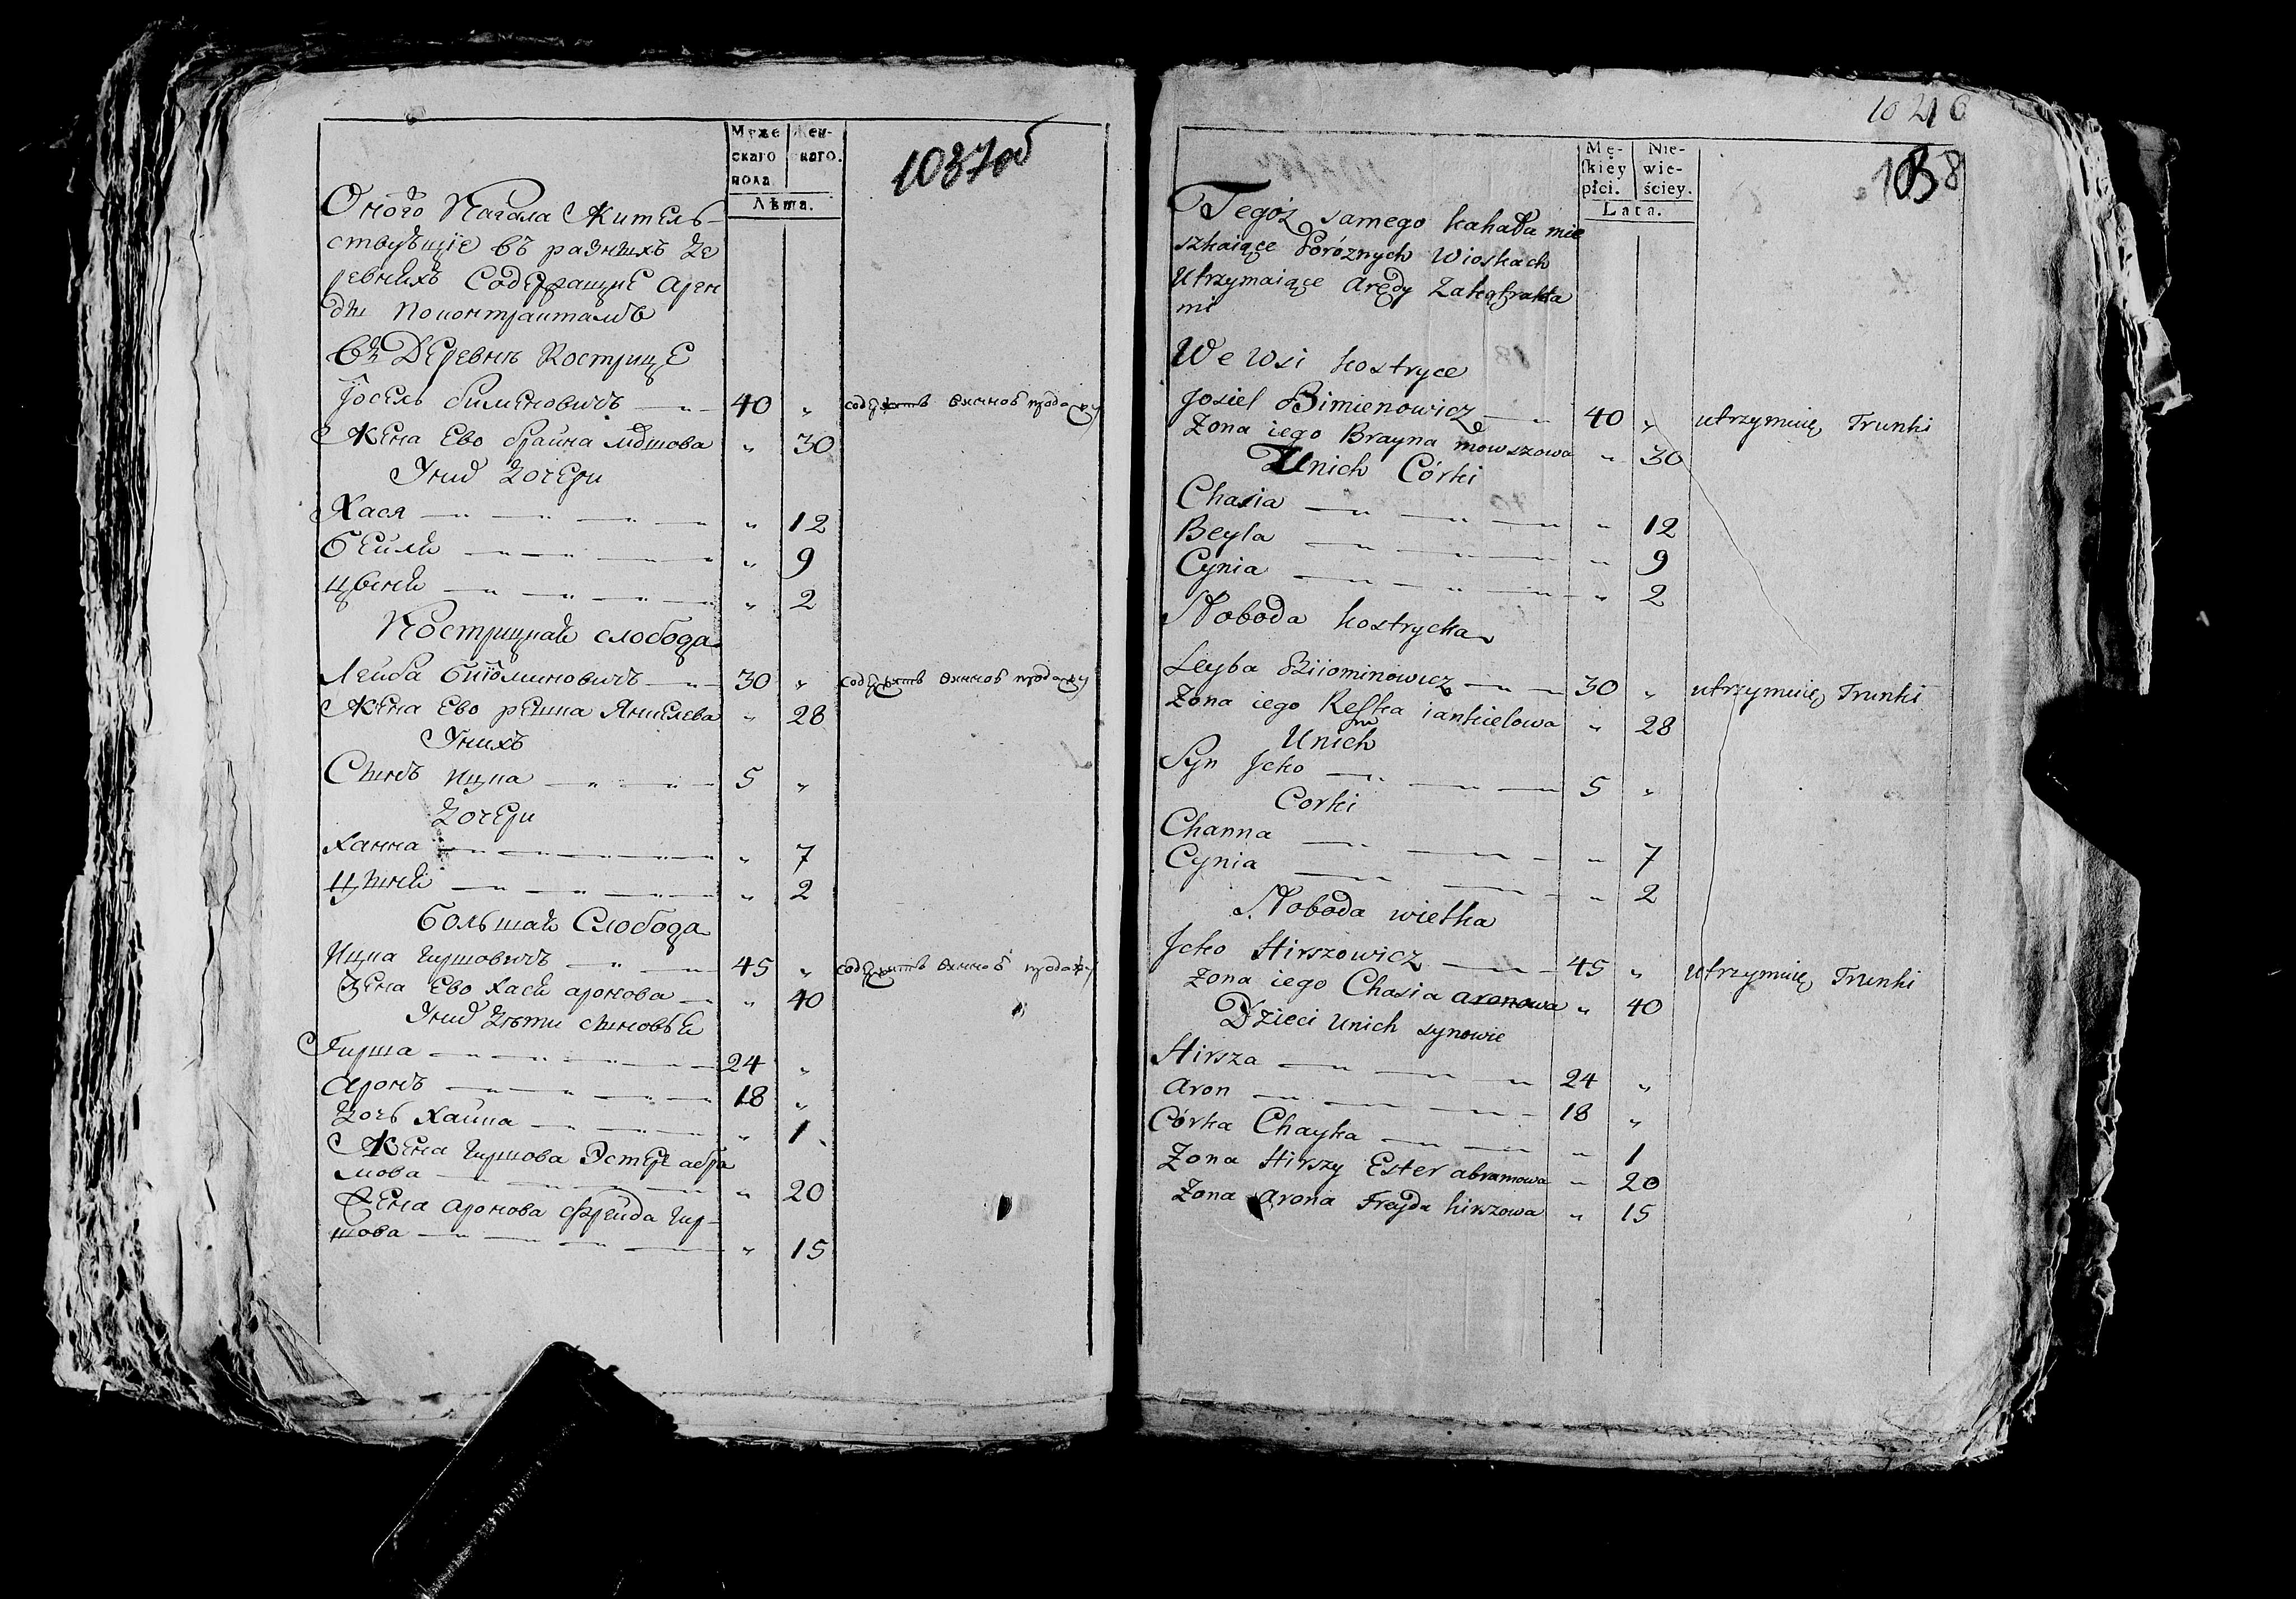 Муже
скаго
пола.
Жен-
скаго.
Лѣта.
1037об
Оного Кагала Житель-
ствующіе въ разныхъ де
ревняхъ Содержащие Арен
ды Поконтрактамъ
Въ Деревнѣ Кострице
Іосель Бименовичъ — „ — 40 „ содержитъ винноъ продажу
Жена Ево Браина Мовшова „ 30
Уних Дочери
Хася — „ — „ — „ — „ 12
Бейля — „ — „ — „ 9
Цвиня — „ — „ — „ — „ 2
Кострицкая слобода
Лейба Биоминовичъ — „ — 30 „ содержитъ винноъ продажу
Жена Ево решка Янкелева „ 28
Унихъ
Сынъ Ицка — „ — „ — 5 „
Дочери
Ханна — „ — „ — „ — „ 7
Цыня — „ — „ — „ — „ 2
Большая Слобода
Ицка гиршовичъ — „ — 45 „ содержитъ винноъ продажу
Жена Ево Хася аронова — „ 40
Уних Дѣти сыновья
Гирша — „ — „ — „ — 24 „
Аронъ — „ — „ — „ — 18 „
Дочь Хайка — „ — „ — „ 1
Жена гиршова Эстер абра
мова — „ — „ — „ 20
Жена аронова Фрейда гир-
шова — „ — „ — „ — „ 15
10 216
1038
Mę-
skiey
płci.
Nie-
wie-
ściey.
Lata.
Tegoż samego kahału mie
szkaiące Poróznych Wioskach
Utrzymaiące Arędy Zakątrakta
mi
We Wsi kostryce
Josiel Bimienowicz — „ 40 „ utrzymuię Trunki
Zona iego Brayna mowszowa „ 30
Unich Córki
Chasia — „ — „ — „ — „ 12
Beyla — „ — „ — „ 9
Cynia — „ — „ — „ — „ 2
Słoboda kostrycka
Leyba Biiominowicz — „ — 30 „ utrzymuię Trunki
Zona iego Reszka iankielowa „ 28
Unich
Syn Jcko — „ — „ — 5 „
Corki
Channa — „ — „ — „ 7
Cynia — „ — „ — „ 2
Słoboda wielka
Jcko Hirszowicz — „ — 45 „ utrzymuię Trunki
Zona iego Chasia aronowa „ 40
Dzieci Unich synowie
Hirsza — „ — „ — „ 24 „
Aron — „ — „ — „ — 18 „
Córka Chayka — „ — „ — „ 1
Zona Hirszy Ester abramowa „ 20
Zona Arona Frayda hirszowa „ 15